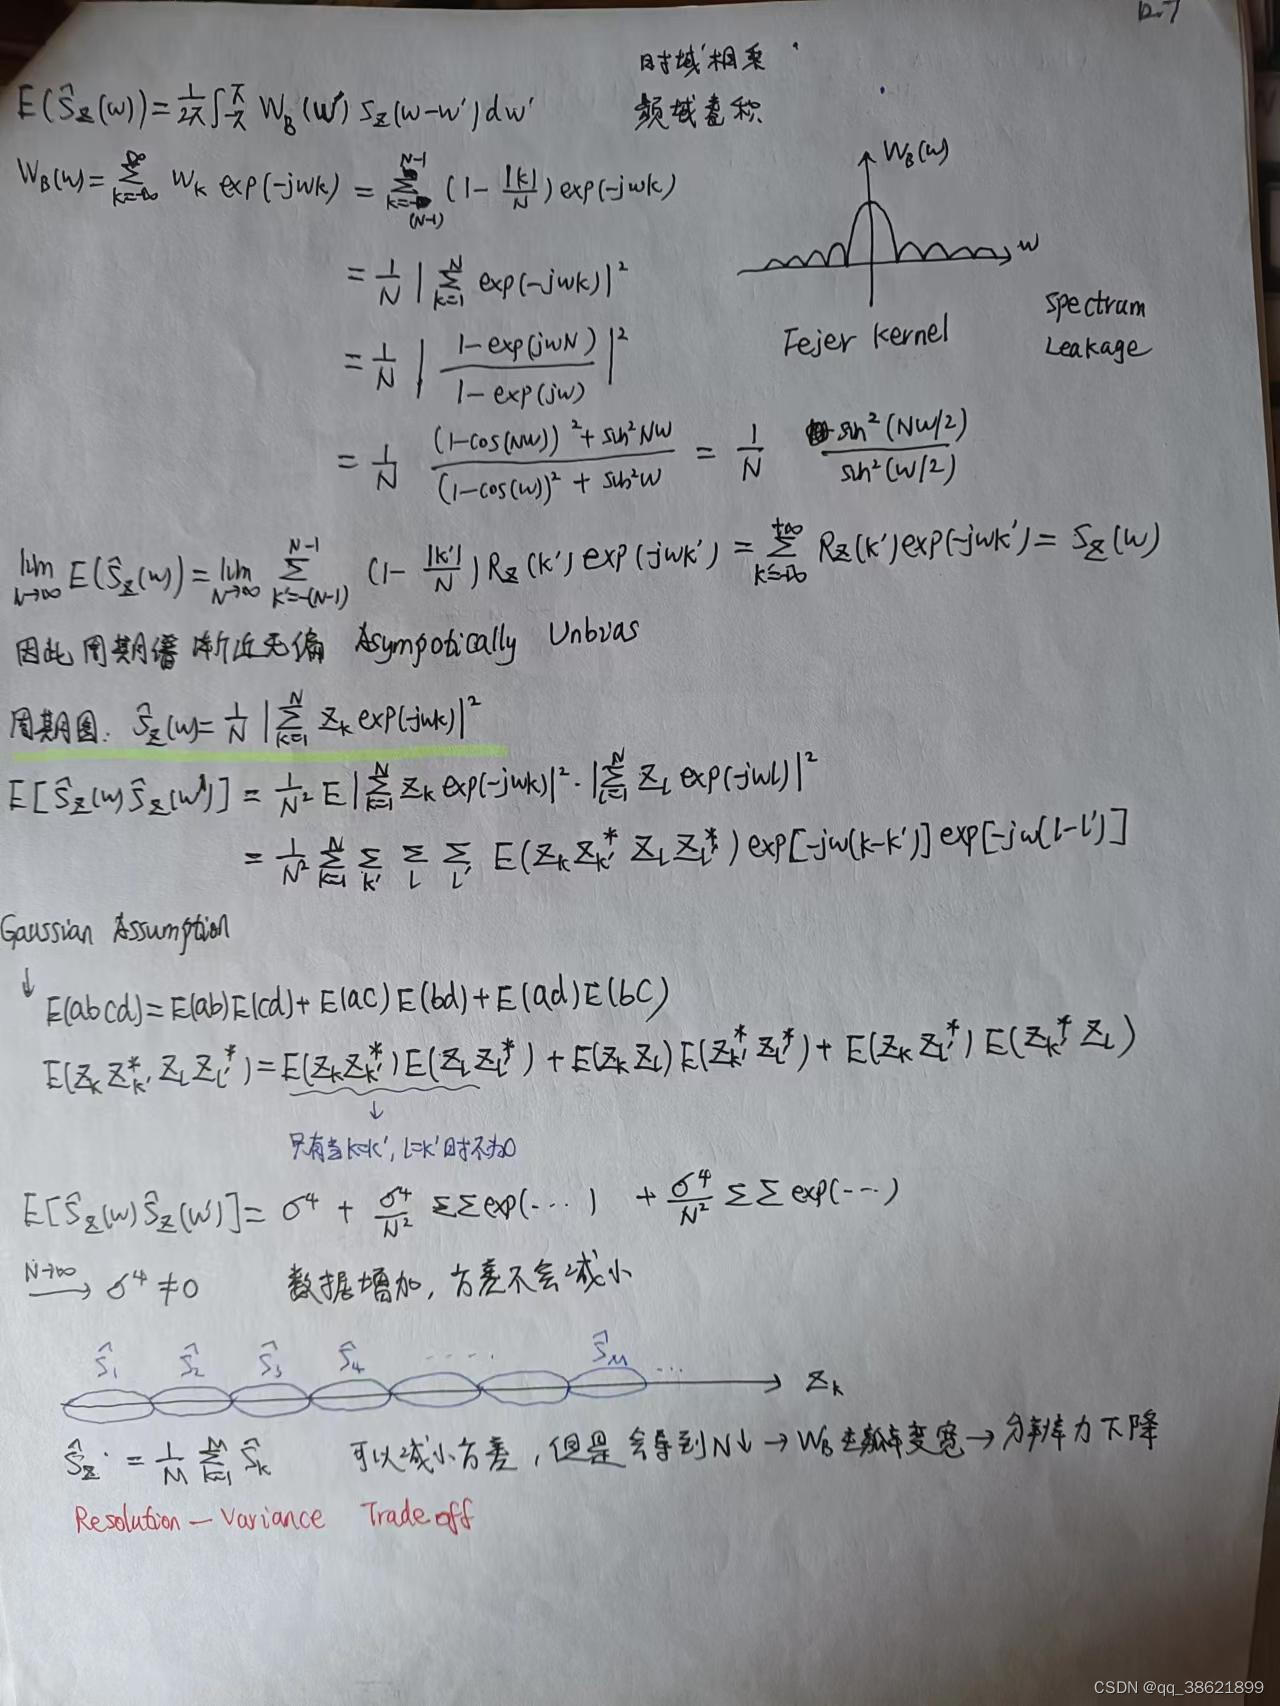 12.7
时域相乘
频域卷积
E(Ŝ_Z(w)) = 1/2π ∫_{-π}^{π} W_B(w') S_Z(w-w') dw'
W_B(w) = Σ_{k=-∞}^{∞} W_k exp(-jwk) = Σ_{k=-(N-1)}^{N-1} (1 - |k|/N) exp(-jwk)
W_B(w)
w
= 1/N |Σ_{k=1}^{N} exp(-jwk)|^2
Spectrum
Leakage
Fejer Kernel
= 1/N |(1-exp(jwN))/(1-exp(jw))|^2
= 1/N ((1-cos(Nw))^2 + sin^2 Nw)/((1-cos(w))^2 + sin^2 w) = 1/N sin^2(Nw/2)/sin^2(w/2)
lim_{N→∞} E(Ŝ_Z(w)) = lim_{N→∞} Σ_{k'=-(N-1)}^{N-1} (1 - |k'|/N) R_Z(k') exp(-jwk') = Σ_{k'=-∞}^{+∞} R_Z(k') exp(-jwk') = S_Z(w)
因此周期谱渐近无偏 Asympotically Unbias
周期图: Ŝ_Z(w) = 1/N |Σ_{k=1}^{N} Z_k exp(-jwk)|^2
E[Ŝ_Z(w) Ŝ_Z(w')] = 1/N^2 E|Σ_{k=1}^{N} Z_k exp(-jwk)|^2 · |Σ_{l=1}^{N} Z_l exp(-jwl)|^2
= 1/N^2 Σ_{k=1}^{N} Σ_{k'} Σ_l Σ_{l'} E(Z_k Z_{k'}^* Z_l Z_{l'}^*) exp[-jw(k-k')] exp[-jw(l-l')]
Gaussian Assumption
↓
E(abcd) = E(ab)E(cd) + E(ac)E(bd) + E(ad)E(bc)
E(Z_k Z_{k'}^* Z_l Z_{l'}^*) = E(Z_k Z_{k'}^*) E(Z_l Z_{l'}^*) + E(Z_k Z_l) E(Z_{k'}^* Z_{l'}^*) + E(Z_k Z_{l'}^*) E(Z_{k'}^* Z_l)
↓
只有当k=k', l=k'时不为0
E[Ŝ_Z(w) Ŝ_Z(w')] = σ^4 + σ^4/N^2 ΣΣexp(···) + σ^4/N^2 ΣΣ exp(···)
N→∞ → σ^4 ≠ 0 数据增加, 方差不会减小
Ŝ_1 Ŝ_2 Ŝ_3 Ŝ_4 ····· Ŝ_M ···
Z_k
Ŝ_Z = 1/M Σ_{k=1}^{M} Ŝ_k 可以减小方差, 但是会导到N↓ → W_B主瓣变宽 → 分辨力下降
Resolution - Variance Trade off
CSDN @qq_38621899